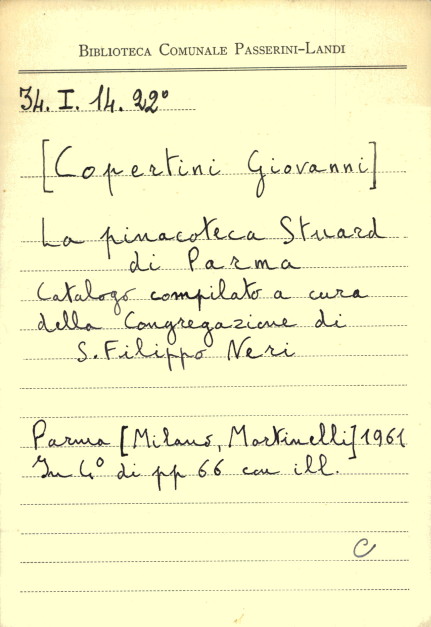 BIBLIOTECA COMUNALE PASSERINI-LANDI
34. I. 14. 22°
[Copertini Giovanni]
La pinacoteca Stuard
di Parma
Catalogo compilato a cura
della Congregazione di
S. Filippo Neri
Parma [Milano, Martinelli] 1961
In 4° di pp 66 con ill.
C